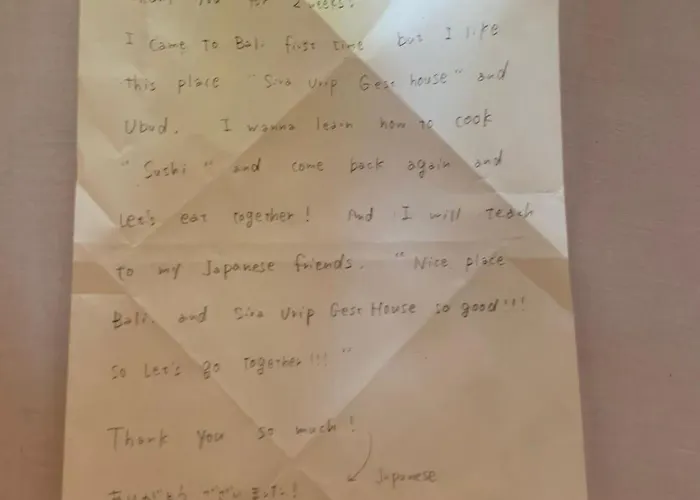 you for 2 weeks!
I Came To Bali first time but I like
this place "Sira Urip Gest house" and
Ubud. I wanna learn how to cook
"Sushi" and come back again and
Let's eat together! And I will Teach
to my Japanese friends. "Nice place
Bali. and Sira Urip Gest House so good!!!
so Let's go Together!!!"
Thank you so much!
Japanese
ありがとう ございました!